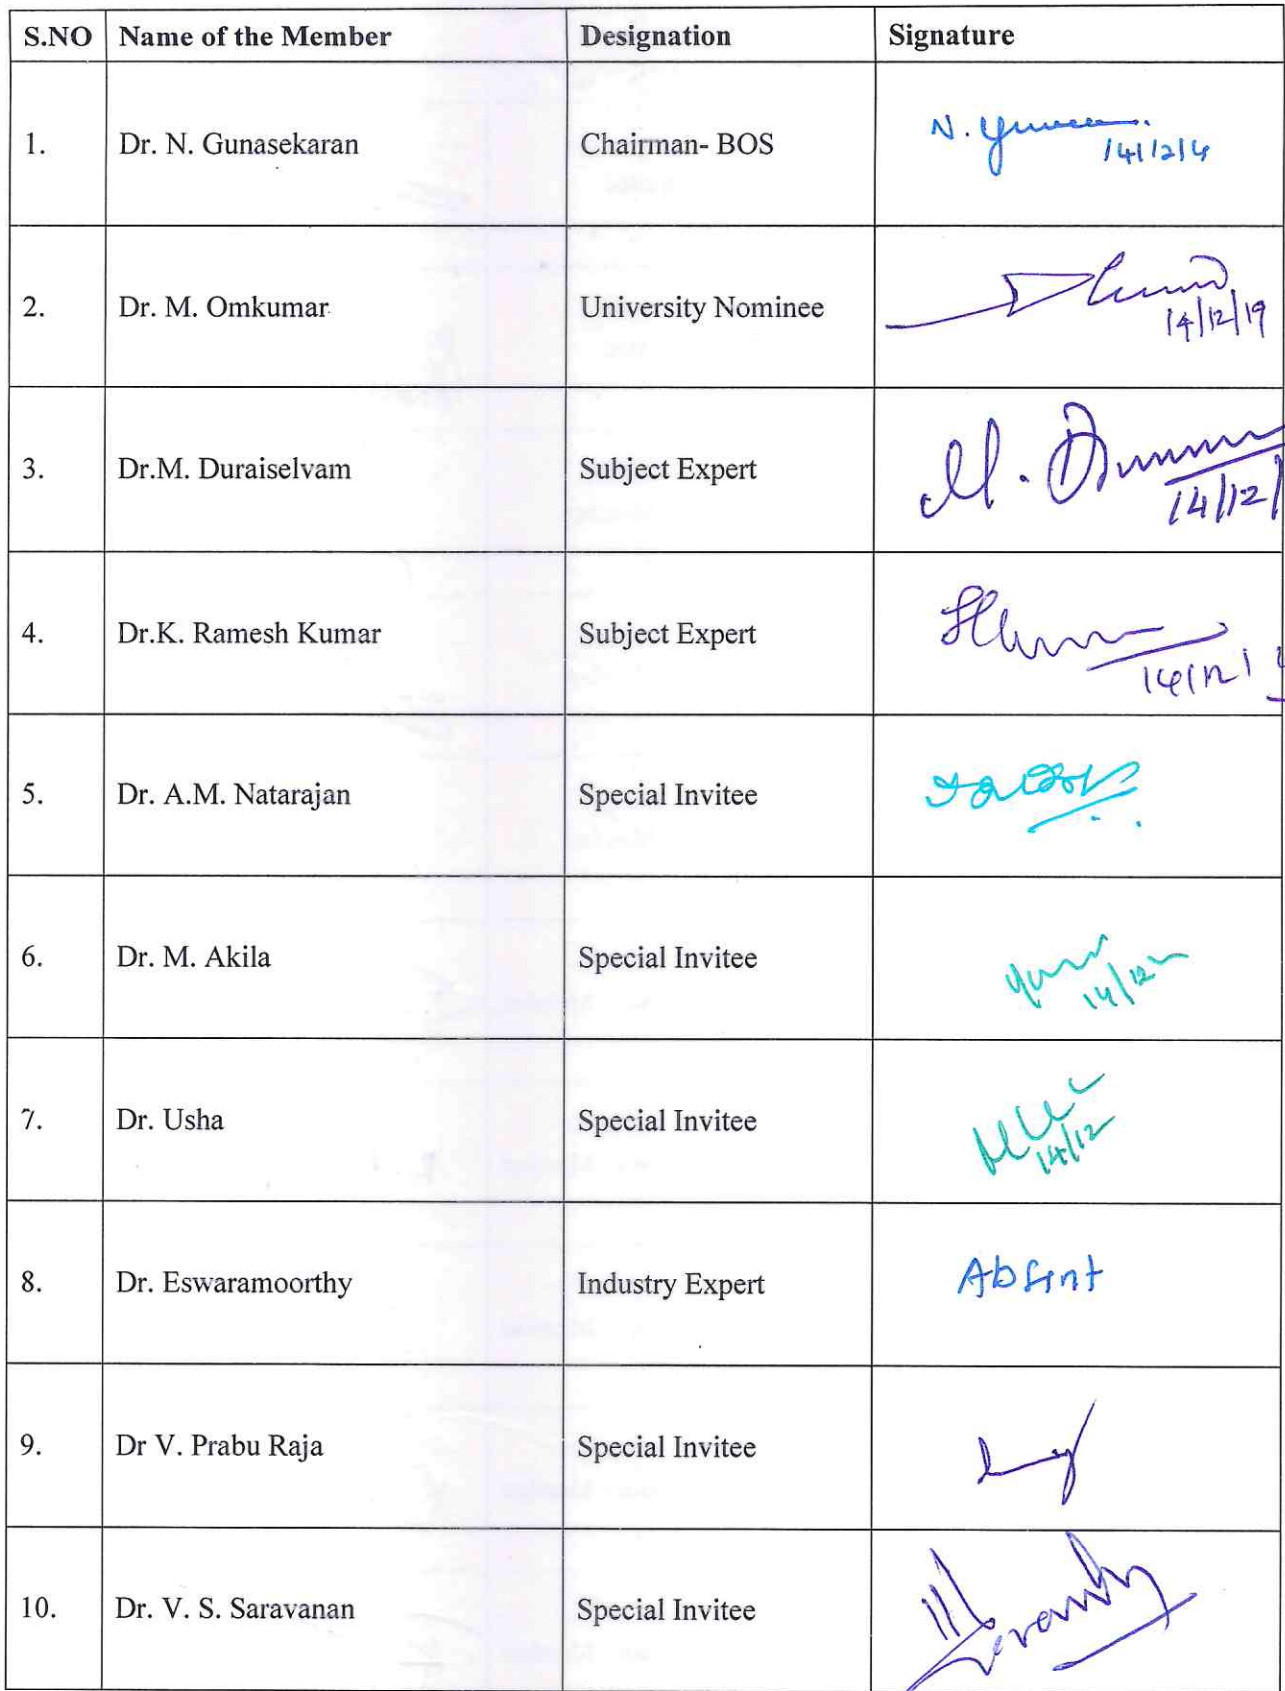 S.NO Name of the Member Designation Signature
1. Dr. N. Gunasekaran Chairman- BOS N.
2. Dr. M. Omkumar University Nominee
14/12/19
3. Dr.M. Duraiselvam Subject Expert M.
14/12/
4. Dr.K. Ramesh Kumar Subject Expert
5. Dr. A.M. Natarajan Special Invitee
6. Dr. M. Akila Special Invitee
14/12
7. Dr. Usha Special Invitee
14/12
8. Dr. Eswaramoorthy Industry Expert Absent
9. Dr V. Prabu Raja Special Invitee
10. Dr. V. S. Saravanan Special Invitee